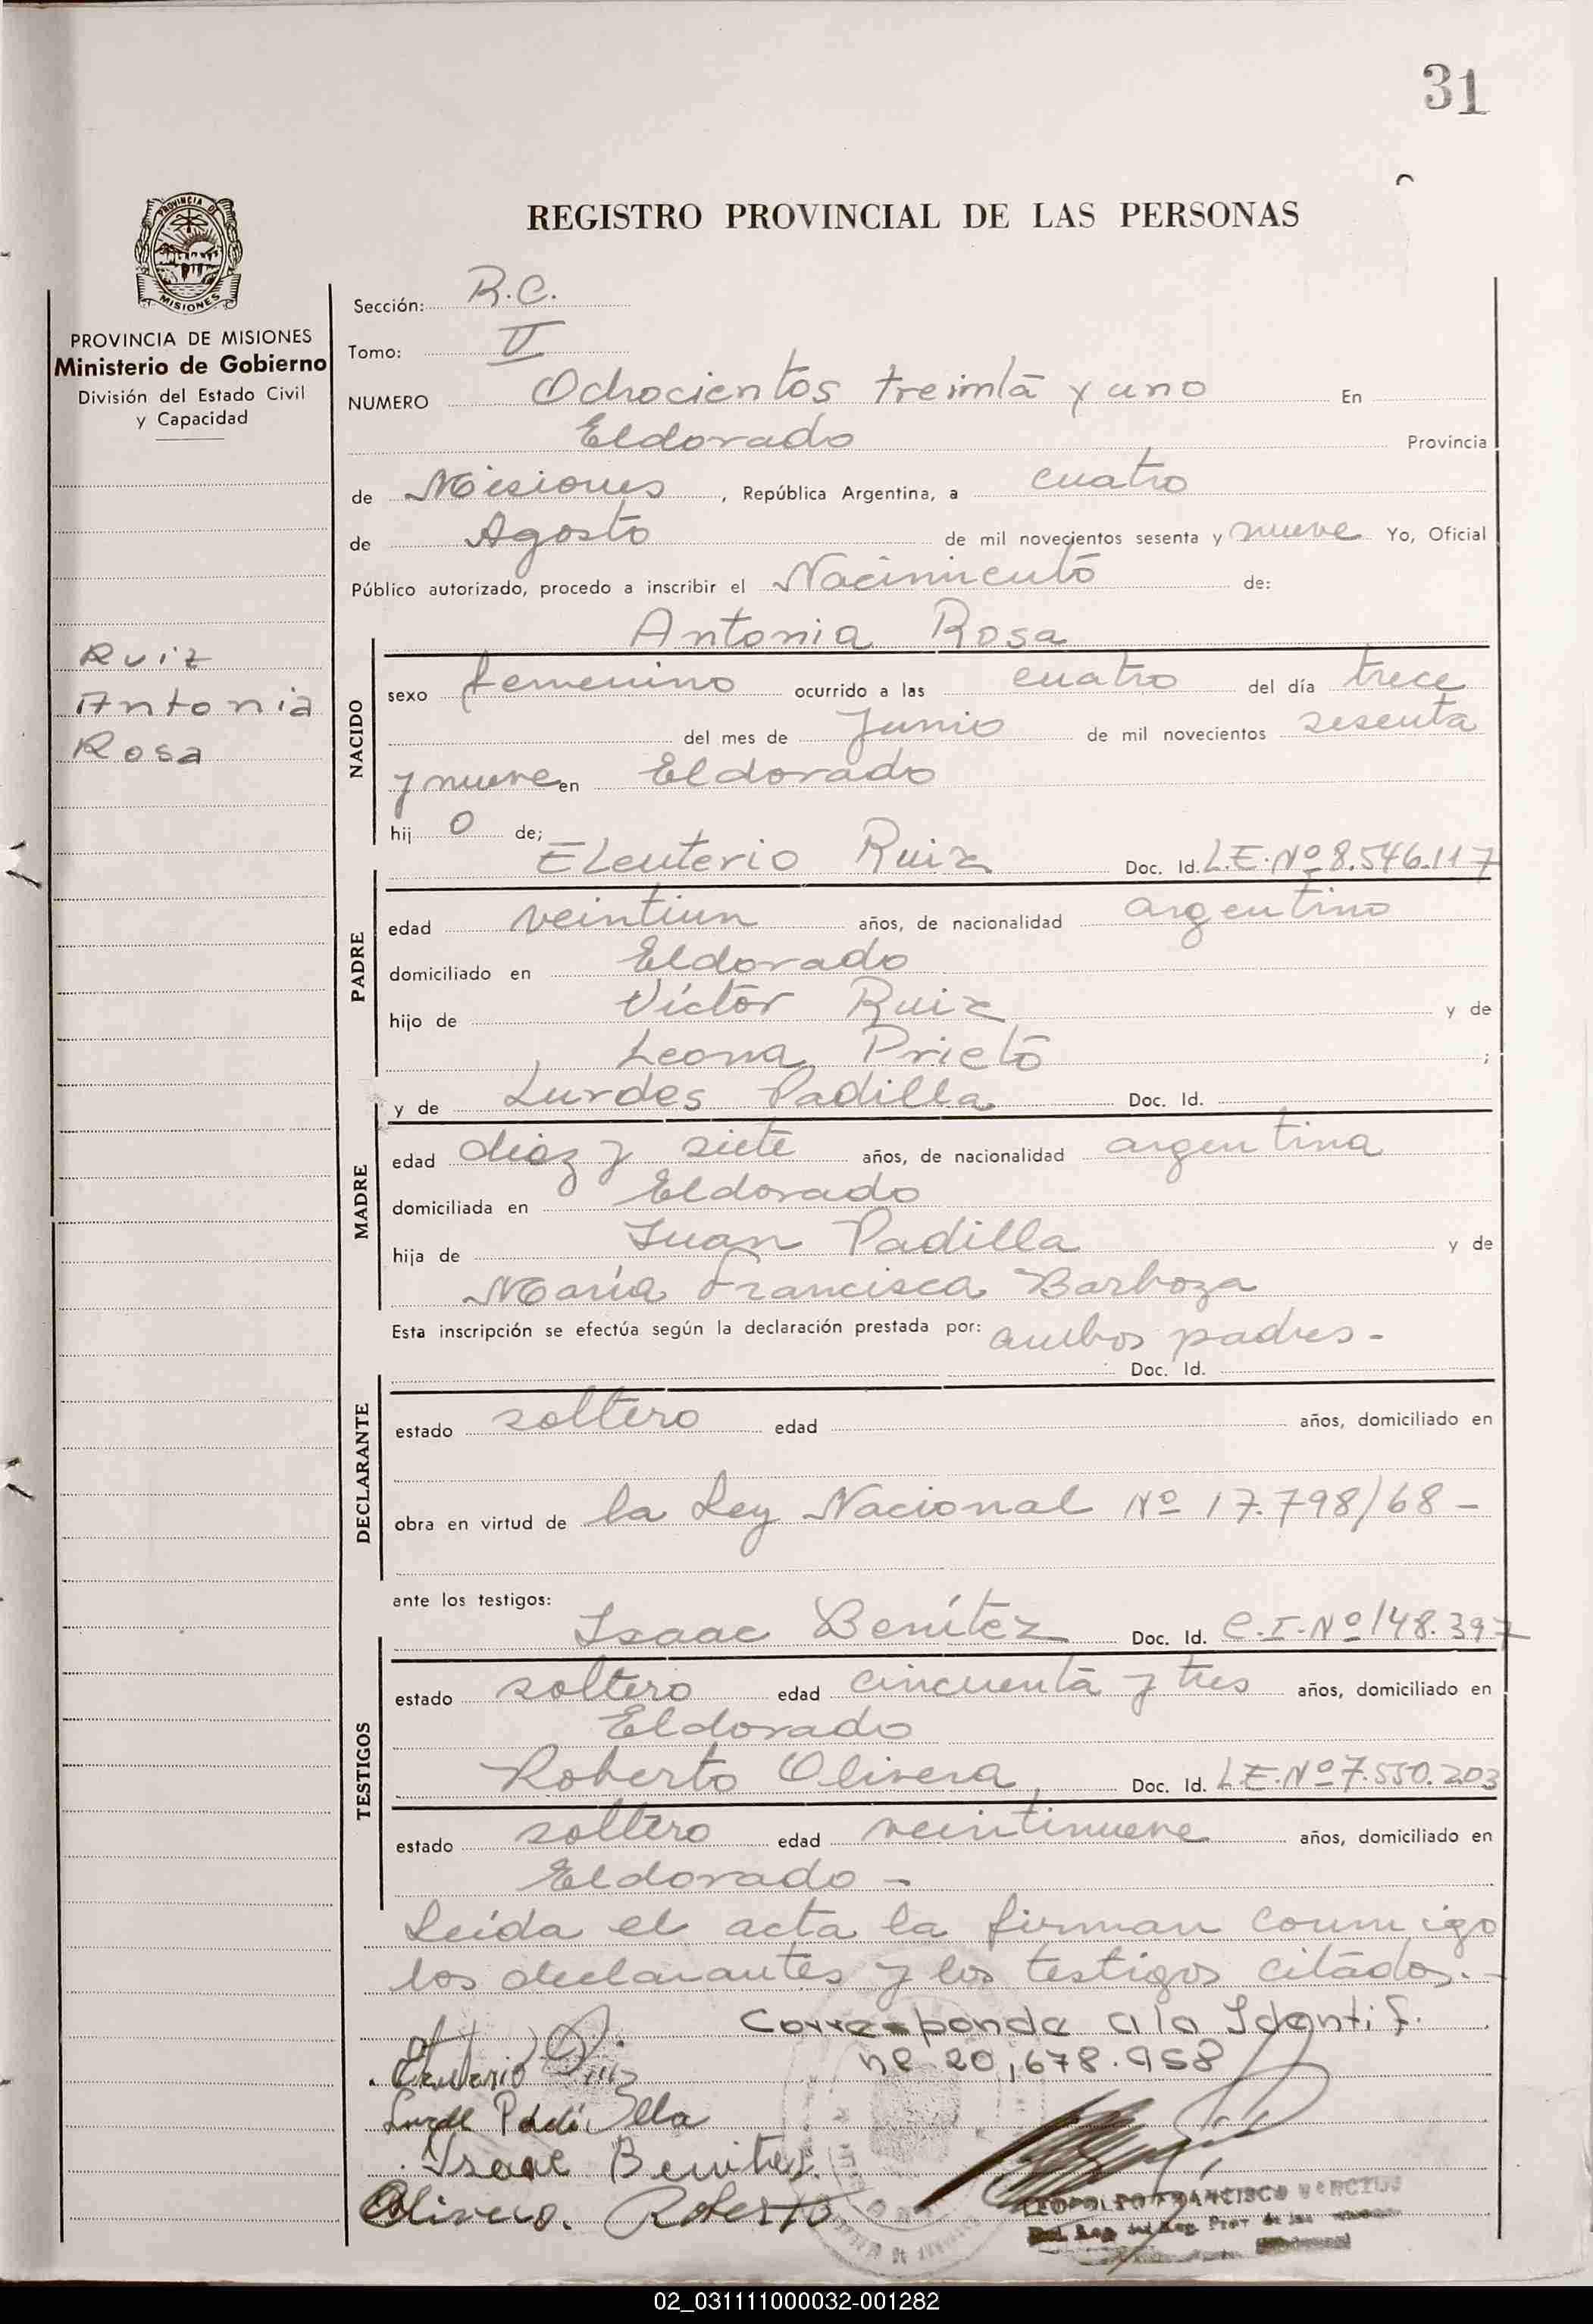 31
PROVINCIA DE
MISIONES
PROVINCIA DE MISIONES
Ministerio de Gobierno
División del Estado Civil
y Capacidad
Ruiz
Antonia
Rosa
REGISTRO PROVINCIAL DE LAS PERSONAS
Sección: R.C.
Tomo: II
NUMERO Ochocientos treinta y uno En
Eldorado Provincia
de Misiones, República Argentina, a cuatro
de Agosto de mil novecientos sesenta y nueve Yo, Oficial
Público autorizado, procedo a inscribir el Nacimiento de:
Antonia Rosa
NACIDO
sexo femenino ocurrido a las cuatro del día trece
del mes de Junio de mil novecientos sesenta
y nueve en Eldorado
hij o de;
Eleuterio Ruiz Doc. Id. L.E. Nº 8.546.117
PADRE
edad veintiun años, de nacionalidad argentino
domiciliado en Eldorado
hijo de Víctor Ruiz y de
Leona Prieto ;
y de Lurdes Padilla Doc. Id.
MADRE
edad diez y siete años, de nacionalidad argentina
domiciliada en Eldorado
hija de Juan Padilla y de
María Francisca Barboza
Esta inscripción se efectúa según la declaración prestada por: ambos padres -
Doc. Id.
DECLARANTE
estado soltero edad años, domiciliado en
obra en virtud de la Ley Nacional Nº 17.798/68 -
ante los testigos:
Isaac Benítez Doc. Id. C.I. Nº 148.397
TESTIGOS
estado soltero edad cincuenta y tres años, domiciliado en
Eldorado
Roberto Olivera, Doc. Id. L.E. Nº 7.550.203
estado soltero edad veintinueve años, domiciliado en
Eldorado -
Leída el acta la firman conmigo
los declarantes y los testigos citados. -
Corresponde a la Identif.
nº 20,678.958
Eleuterio Ruiz
Padilla
Isaac Benitez
Olivera. Roberto
LEOPOLDO FRANCISCO
02_031111000032-001282